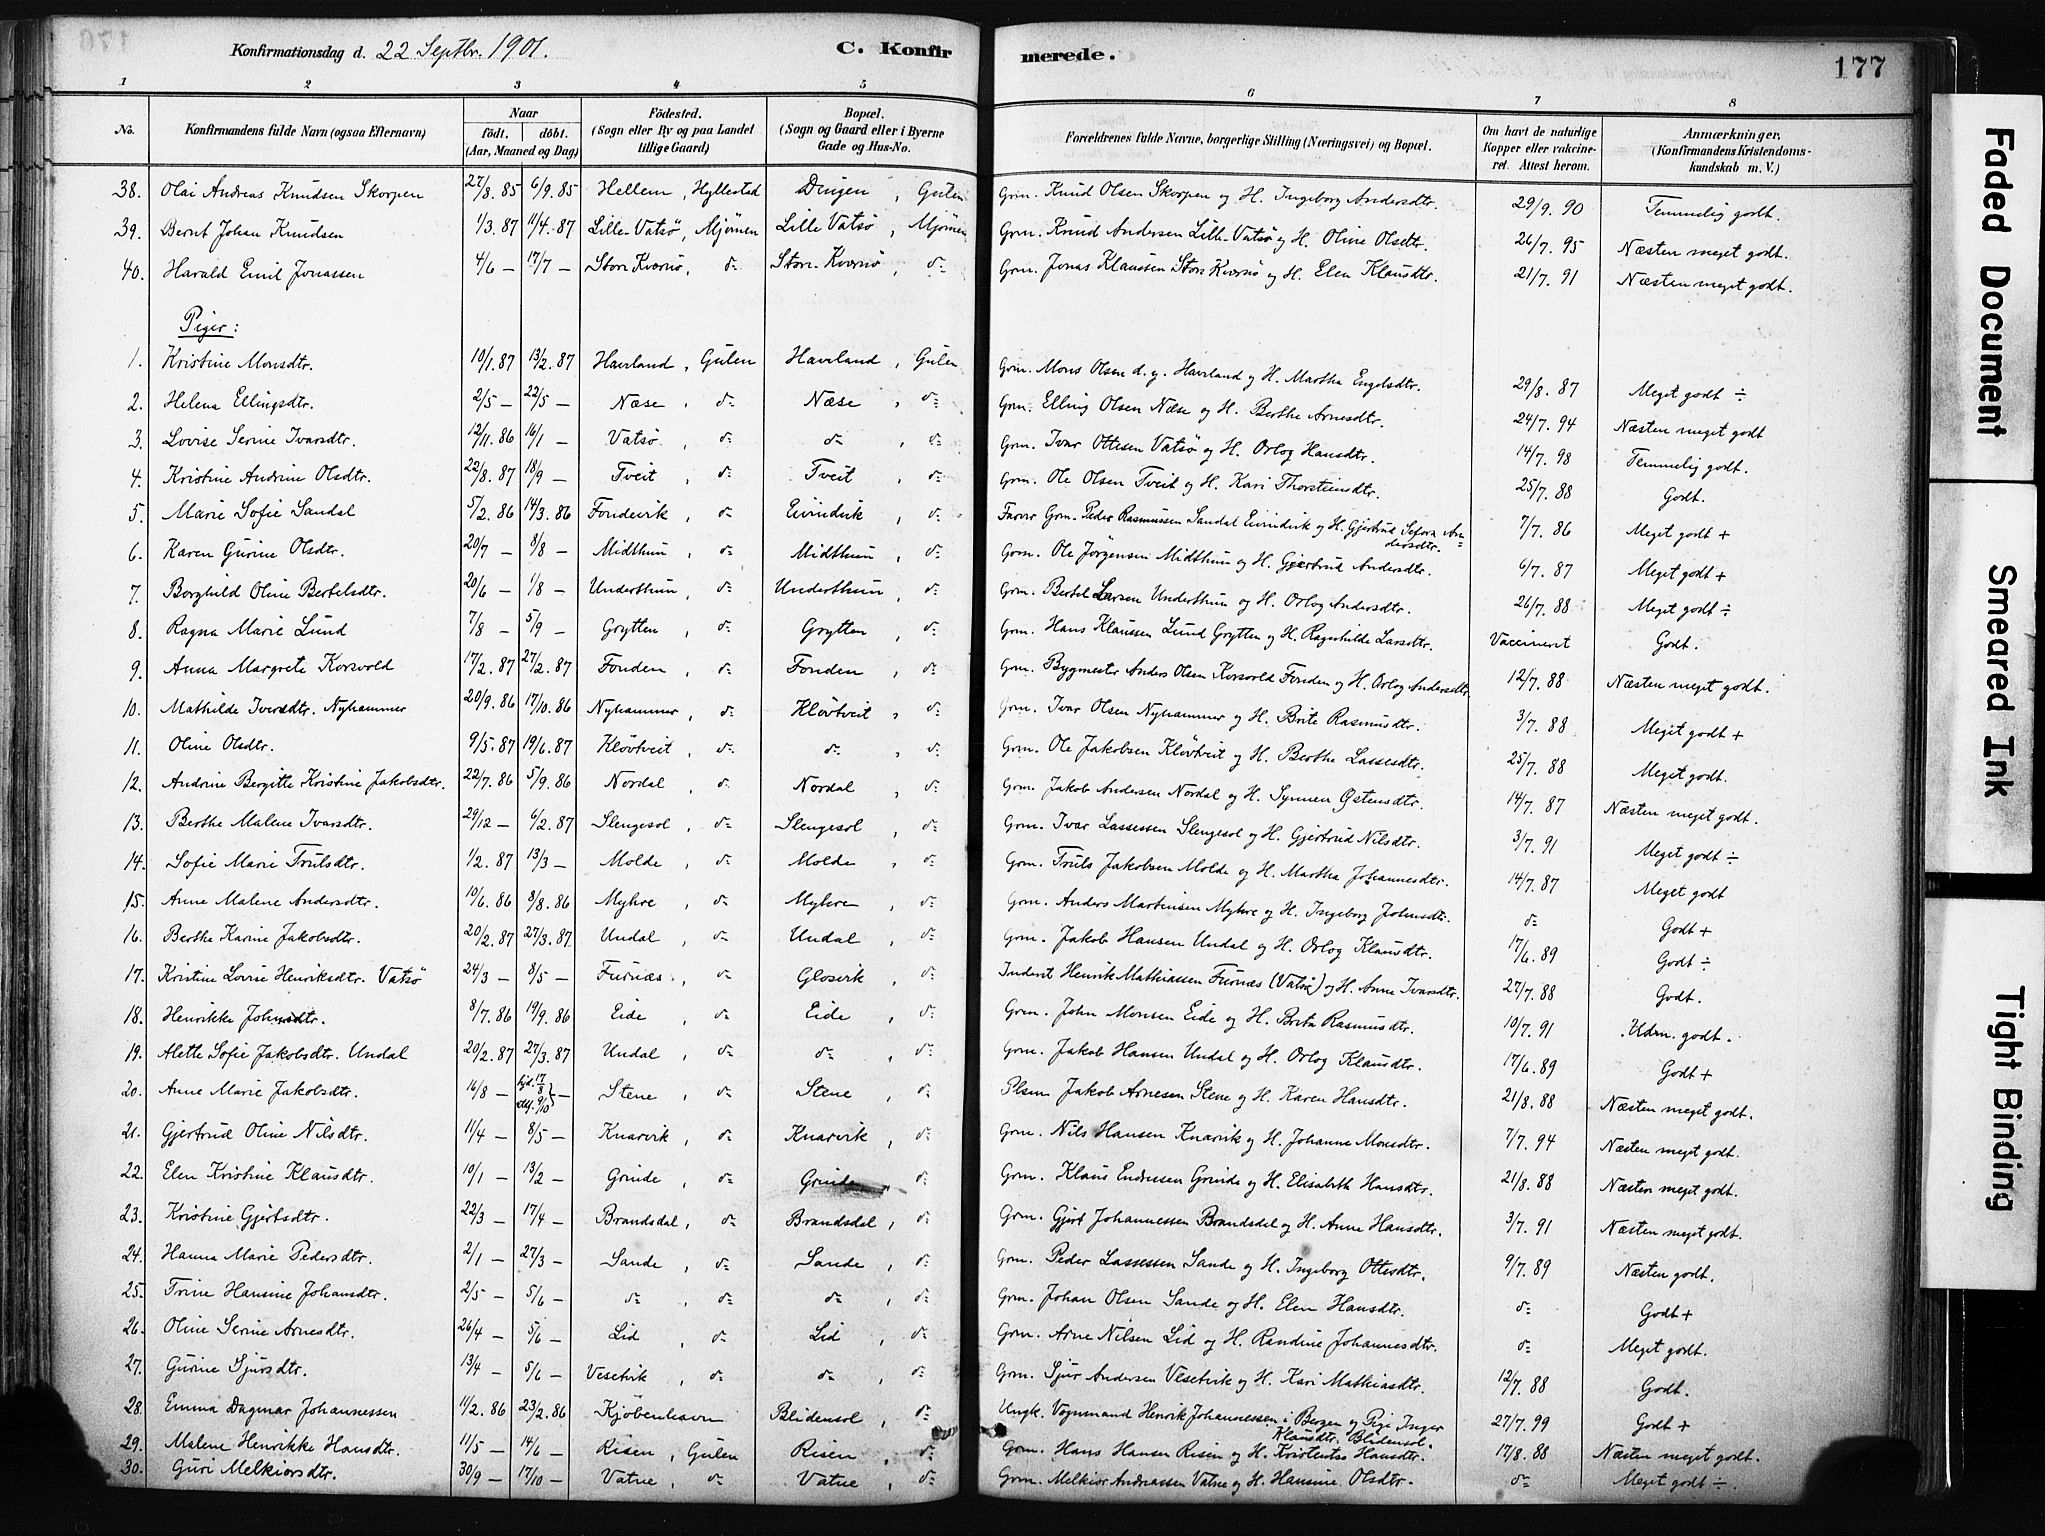 Konfirmationsdag d. 22 Septbr. 1901. C. Konfirmerede. 177
1 2 3 4 5 6 7 8
No. Konfirmandens fulde Navn (ogsaa Efternavn) Naar født. døbt. (Aar, Maaned og Dag) Födested. (Sogn eller By og paa Landet tillige Gaard) Bopæl. (Sogn og Gaard eller i Byerne Gade og Hus-No. Forældrenes fulde Navne, borgerlige Stilling (Næringsvei) og Bopæl. Om havt de naturlige Kopper eller vakcineret. Attest herom. Anmærkninger, (Konfirmandens Kristendomskundskab m. V.)
38. Olai Andreas Knudsen Skorpen 27/8. 85 6/9. 85 Hellem, Hyllestad Dingen, Gulen Grm. Knud Olsen Skorpen og H. Ingeborg Andersdtr. 29/9. 90 Temmelig godt.
39. Bernt Johan Knudsen 1/3. 87 11/4. 87 Lille-Vatsø, Mjømen Lille Vatsø, Mjømen Grm. Knud Andersen Lille-Vatsø og H. Oline Olsdtr. 26/7. 95 Næsten meget godt.
40. Harald Emil Jonassen 4/6 – 17/7 – Store Kversø, do Store-Kversø, do Grm. Jonas Klaussen Store Kversø og H. Elen Klausdtr. 21/7. 91 Næsten meget godt.
Piger:
1. Kristine Monsdtr. 10/1. 87 13/2. 87 Haveland, Gulen Haveland, Gulen Grm. Mons Olsen d. y. Haveland og H. Martha Engelsdtr. 29/8. 87 Meget godt ÷
2. Helena Ellingsdtr. 2/5 – 22/5 – Næse, do Næse, do Grm. Elling Olsen Næse og H. Berthe Arnesdtr. 24/7. 94 Næsten meget godt
3. Lovise Serine Ivarsdtr. 12/11. 86 16/1 – Vatsø, do do, do Grm. Ivar Ottesen Vatsø og H. Orlog Hansdtr. 14/7. 98 Temmelig godt.
4. Kristine Andrine Olsdtr. 22/8. 87 18/9 – Tveit, do Tveit, do Grm. Ole Olsen Tveit og H. Kari Thorsteinsdtr. 25/7. 88 Godt.
5. Marie Sofie Sandal 5/2. 86 14/3. 86 Fondevik, do Eivindvik, do Farver Grm. Peder Rasmussen Sandal Eivindvik og H. Gjertrud Sefora Andersdtr. 7/7. 86 Meget godt +
6. Karen Gurine Olsdtr. 20/7 – 8/8 – Midthun, do Midthun, do Grm. Ole Jørgensen Midthun og H. Gjertrud Andersdtr. 6/7. 87 Meget godt +
7. Borghild Oline Bertelsdtr. 20/6 – 1/8 – Underthun, do Underthun, do Grm. Bertel Larsen Underthun og H. Orlog Andersdtr. 26/7. 88 Meget godt ÷
8. Ragna Marie Lund 7/8 – 5/9 – Grytten, do Grytten, do Grm. Hans Klaussen Lund Grytten og H. Ragnhilde Larsdtr. Vaccineret Godt.
9. Anna Margrete Korsvold 17/2. 87 27/2. 87 Fonden, do Fonden, do Grm. Bygmester Anders Olsen Korsvold Fonden og H. Orlog Andersdtr. 12/7. 88 Næsten meget godt.
10. Mathilde Iversdtr. Nyhammer 20/9. 86 17/10. 86 Nyhammer, do Kløvtveit, do Grm. Ivar Olsen Nyhammer og H. Brite Rasmusdtr. 3/7. 88 Meget godt +
11. Oline Olsdtr. 9/5. 87 19/6. 87 Kløvtveit, do do, do Grm. Ole Jakobsen Kløvtveit og H. Berthe Lassesdtr. 25/7. 88 Meget godt.
12. Andrine Bergitte Kristine Jakobsdtr. 22/7. 86 5/9. 86 Nordal, do Nordal, do Grm. Jakob Andersen Nordal og H. Synneu Østensdtr. 14/7. 87 Næsten meget godt.
13. Berthe Malene Ivarsdtr. 29/12 – 6/2. 87 Slengesol, do Slengesol, do Grm. Ivar Lassessen Slengesol og H. Gjertrud Nilsdtr. 3/7. 91 Meget godt ÷
14. Sofie Marie Trulsdtr. 1/2. 87 13/3 – Molde, do Molde, do Grm. Truls Jakobsen Molde og H. Martha Johannesdtr. 14/7. 87 Meget godt
15. Anne Malene Andersdtr. 10/6. 86 8/8. 86 Myhre, do Myhre, do Grm. Anders Martinsen Myhre og H. Ingeborg Johnsdtr. do Godt +
16. Berthe Karine Jakobsdtr. 20/2. 87 27/3. 87 Undal, do Undal, do Grm. Jakob Hansen Undal og H. Orlog Klausdtr. 17/6. 89 Godt ÷
17. Kristine Lovise Henriksdtr. Vatsø 24/3 – 8/5 – Furnæs, do Glosvik, do Inderst Henrik Mathiassen Furnæs (Vatsø) og H. Anne Ivarsdtr. 27/7. 88 Godt.
18. Henrikke Johnsdtr. 8/7. 86 19/9. 86 Eide, do Eide, do Grm. John Monsen Eide og H. Brita Rasmusdtr. 10/7. 91 Udm. godt.
19. Alette Sofie Jakobsdtr. Undal 20/2. 87 27/3. 87 Undal, do do, do Grm. Jakob Hansen Undal og H. Orlog Klausdtr. 17/6. 89 Godt +
20. Anne Marie Jakobsdtr. 16/8 – hjd. 17/8 9/10 – Stene, do Stene, do Plsm Jakob Arnesen Stene og H. Karen Hansdtr. 21/8. 88 Næsten meget godt.
21. Gjertrud Oline Nilsdtr. 11/4 – 8/5 – Knarvik, do Knarvik, do Grm. Nils Hansen Knarvik og H. Johanne Monsdtr. 7/7. 94 Næsten meget godt.
22. Elen Kristine Klausdtr. 10/1 – 13/2 – Grinde, do Grinde, do Grm. Klaus Endresen Grinde og H. Elisabeth Hansdtr. 21/8. 88 Næsten meget godt.
23. Kristine Gjertsdtr. 22/3 – 17/4 – Brandsdal, do Brandsdal, do Grm. Gjert Johannessen Brandsdal og H. Anne Hansdtr. 3/7. 91 Næsten meget godt.
24. Hanna Marie Pedersdtr. 2/1 – 27/3 – Sande, do Sande, do Grm. Peder Lassessen Sande og H. Ingeborg Ottesdtr. 9/7. 89 Næsten godt.
25. Trine Hansine Johansdtr. 2/5 – 5/6 – do, do do, do Grm. Johan Olsen Sande og H. Elen Hansdtr. do Godt +
26. Oline Serine Arnesdtr. 26/4 – 5/6 – Lid, do Lid, do Grm. Arne Nilsen Lid og H. Randine Johannesdtr. do Meget godt.
27. Gurine Sjursdtr. 13/4 – 5/6 – Vesetvik, do do, do Grm. Sjur Andersen Vesetvik og H. Kari Mathiasdtr. 12/7. 88 Godt.
28. Emma Dagmar Johannessen 11/2. 86 23/2. 86 Kjøbenhavn Blidensol, do Ungk. Vognmand Henrik Johannessen i Bergen og Pige Inger Klausdtr. Blidensol. 27/7. 99 Godt +
29. Malene Henrikke Hansdtr. 11/5 – 14/6 – Risen, Gulen Risen, do Grm. Hans Hansen Risen og H. Kristense Hansdtr. 17/8. 88 Næsten meget godt.
30. Guri Melkiorsdtr. 30/9 – 17/10 – Vatne, do Vatne, do Grm. Melkior Andreassen Vatne og H. Hansine Olsdtr. do Meget godt ÷.
Faded Document
Smeared Ink
Tight Binding